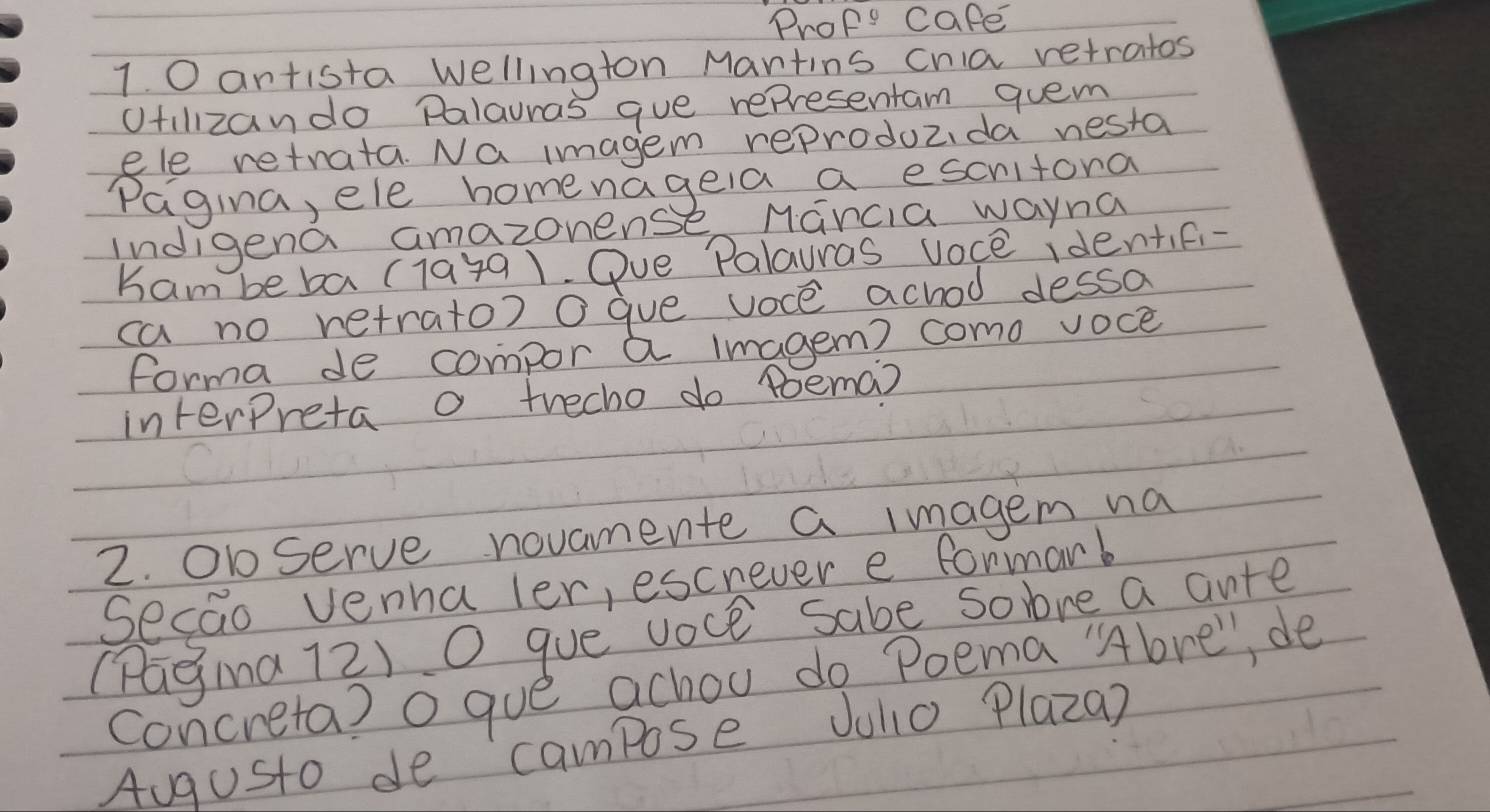 Profº Café
1. O artista Wellington Martins cria retratos
Utilizando Palavras que rePresentam quem
ele retrata. Na imagem reproduzida nesta
Página, ele homenageia a escritora
indígena amazonense Márcia Wayna
Kambeba (1979). Que Palavras você identifi-
ca no retrato? O que você achou dessa
forma de compor a imagem? Como você
interPreta o trecho do Poema?
2. Observe novamente a imagem na
Seção venha ler, escrever e formar!
(Página 12) O que você Sabe Sobre a arte
Concreta? O que achou do Poema "Abre", de
Augusto de campos e Julio Plaza?